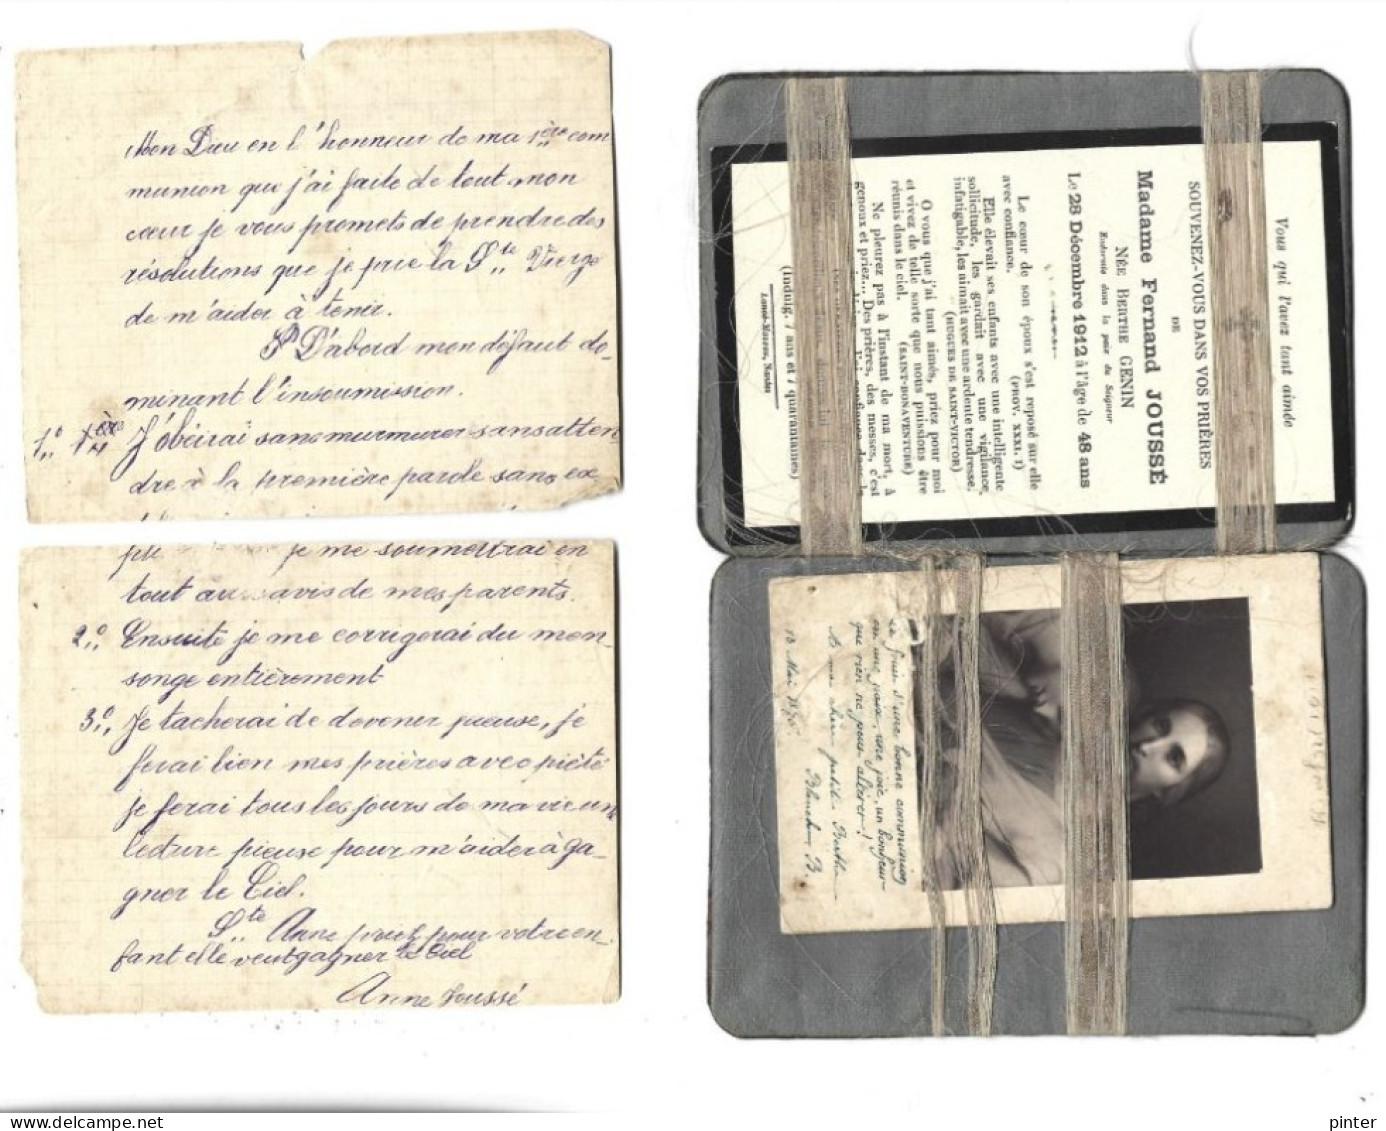 Mon Dieu en l'honneur de ma 1ère com
munion que j'ai faite de tout mon
cœur je vous promets de prendre des
résolutions que je prie la Ste Vierge
de m'aider à tenir.
D'abord mon défaut do-
minant l'insoumission.
1° J'obéirai sans murmurer sans atten
dre à la première parole sans ex
je me soumettrai en
tout aux avis de mes parents.
2° Ensuite je me corrigerai du men
songe entièrement
3° Je tacherai de devenir pieuse, je
ferai bien mes prières avec piété
je ferai tous les jours de ma vie un
lecture pieuse pour m'aider à ga-
gner le Ciel.
Ste Anne priez pour votre en-
fant elle veut gagner le Ciel
Anne Joussé
Vous qui l'avez tant aimée
SOUVENEZ-VOUS DANS VOS PRIÈRES
DE
Madame Fernand JOUSSÉ
NÉE BERTHE GENIN
Endormie dans la paix du Seigneur
Le 28 Décembre 1912 à l'âge de 48 ans
Le cœur de son époux s'est reposé sur elle
avec confiance.
(PROV. XXXI. 1)
Elle élevait ses enfants avec une intelligente
sollicitude, les gardait avec une vigilance
infatigable, les aimait avec une ardente tendresse.
(HUGUES DE SAINT-VICTOR)
O vous que j'ai tant aimés, priez pour moi
et vivez de telle sorte que nous puissions être
réunis dans le ciel.
(SAINT-BONAVENTURE)
Ne pleurez pas à l'instant de ma mort, à
genoux et priez... Des prières, des messes, c'est
(Indulg. 7 ans et 7 quarantaines)
Nantes
Jouis d'une bonne communion
en une paix, une joie, un bonheur
que rien ne peus altérer!
A ma chère petite Berthe
Blanche B.
10 Mai
pinter